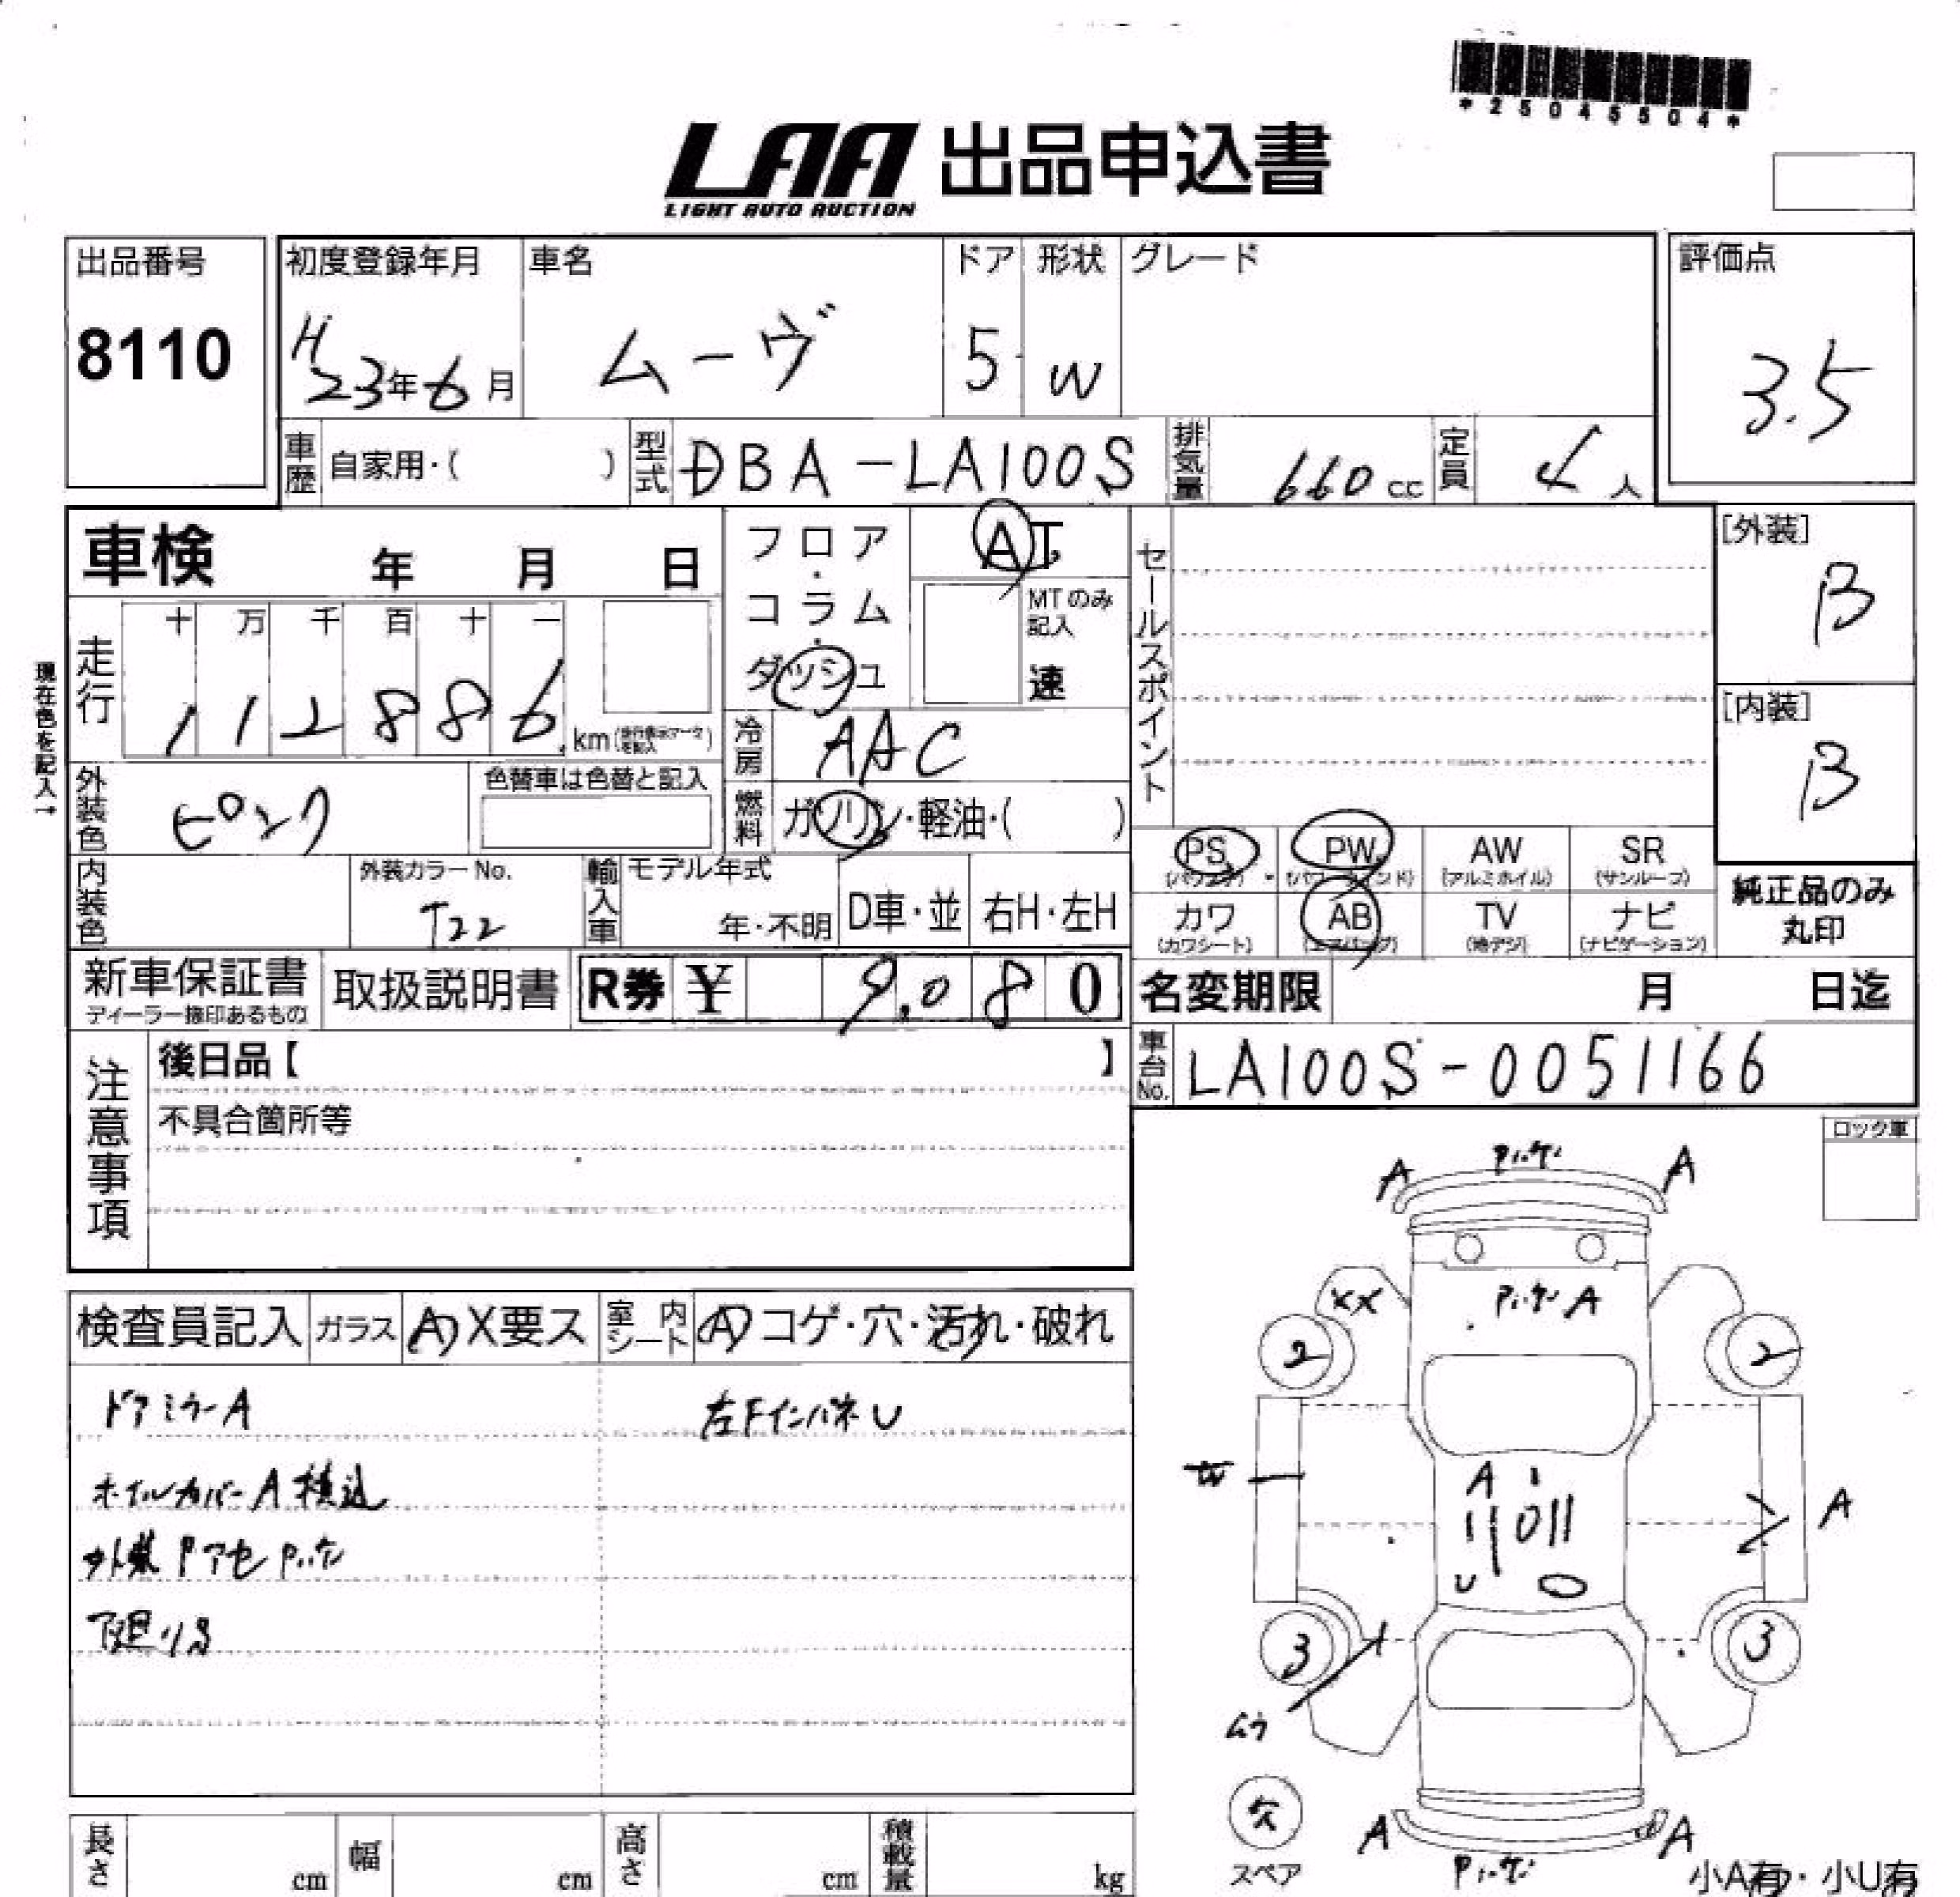 *25045504*
LAA 出品申込書
LIGHT AUTO AUCTION
出品番号
8110
初度登録年月
H
23年6月
車名
ムーヴ
ドア
5
形状
W
グレード
評価点
3.5
車歴 自家用・( )
型式 DBA-LA100S
排気量 660 cc
定員 4 人
車検 年 月 日
フロア・コラム・ダッシュ
AT
MTのみ記入
速
セールスポイント
[外装]
B
[内装]
B
現在色を記入↑
走行
十 万 千 百 十 一
1 1 2 8 8 6
km
冷房 AAC
外装色 ピンク
色替車は色替と記入
燃料 ガソリン・軽油・( )
PS PW AW SR
(アルミホイル) (サンルーフ)
カワ AB TV ナビ
(カワシート) (エアバッグ) (地デジ) (ナビゲーション)
純正品のみ
丸印
内装色
外装カラーNo.
T22
輸入車
モデル年式
年・不明
D車・並
右H・左H
新車保証書
ディーラー捺印あるもの
取扱説明書
R券 ¥ 9.080
名変期限 月 日迄
注意事項
後日品【 】
不具合箇所等
車台No. LA100S-0051166
ロック車
検査員記入
ガラス A X要ス
室内シート A コゲ・穴・汚れ・破れ
ドアミラーA
左FインパネU
ホイルカバーA 積込
下廻りS
A A
XX
A
2 2
A
U
A
3 3
ムラ
欠
スペア
A A
小A有・小U有
長さ cm
幅 cm
高さ cm
積載量 kg